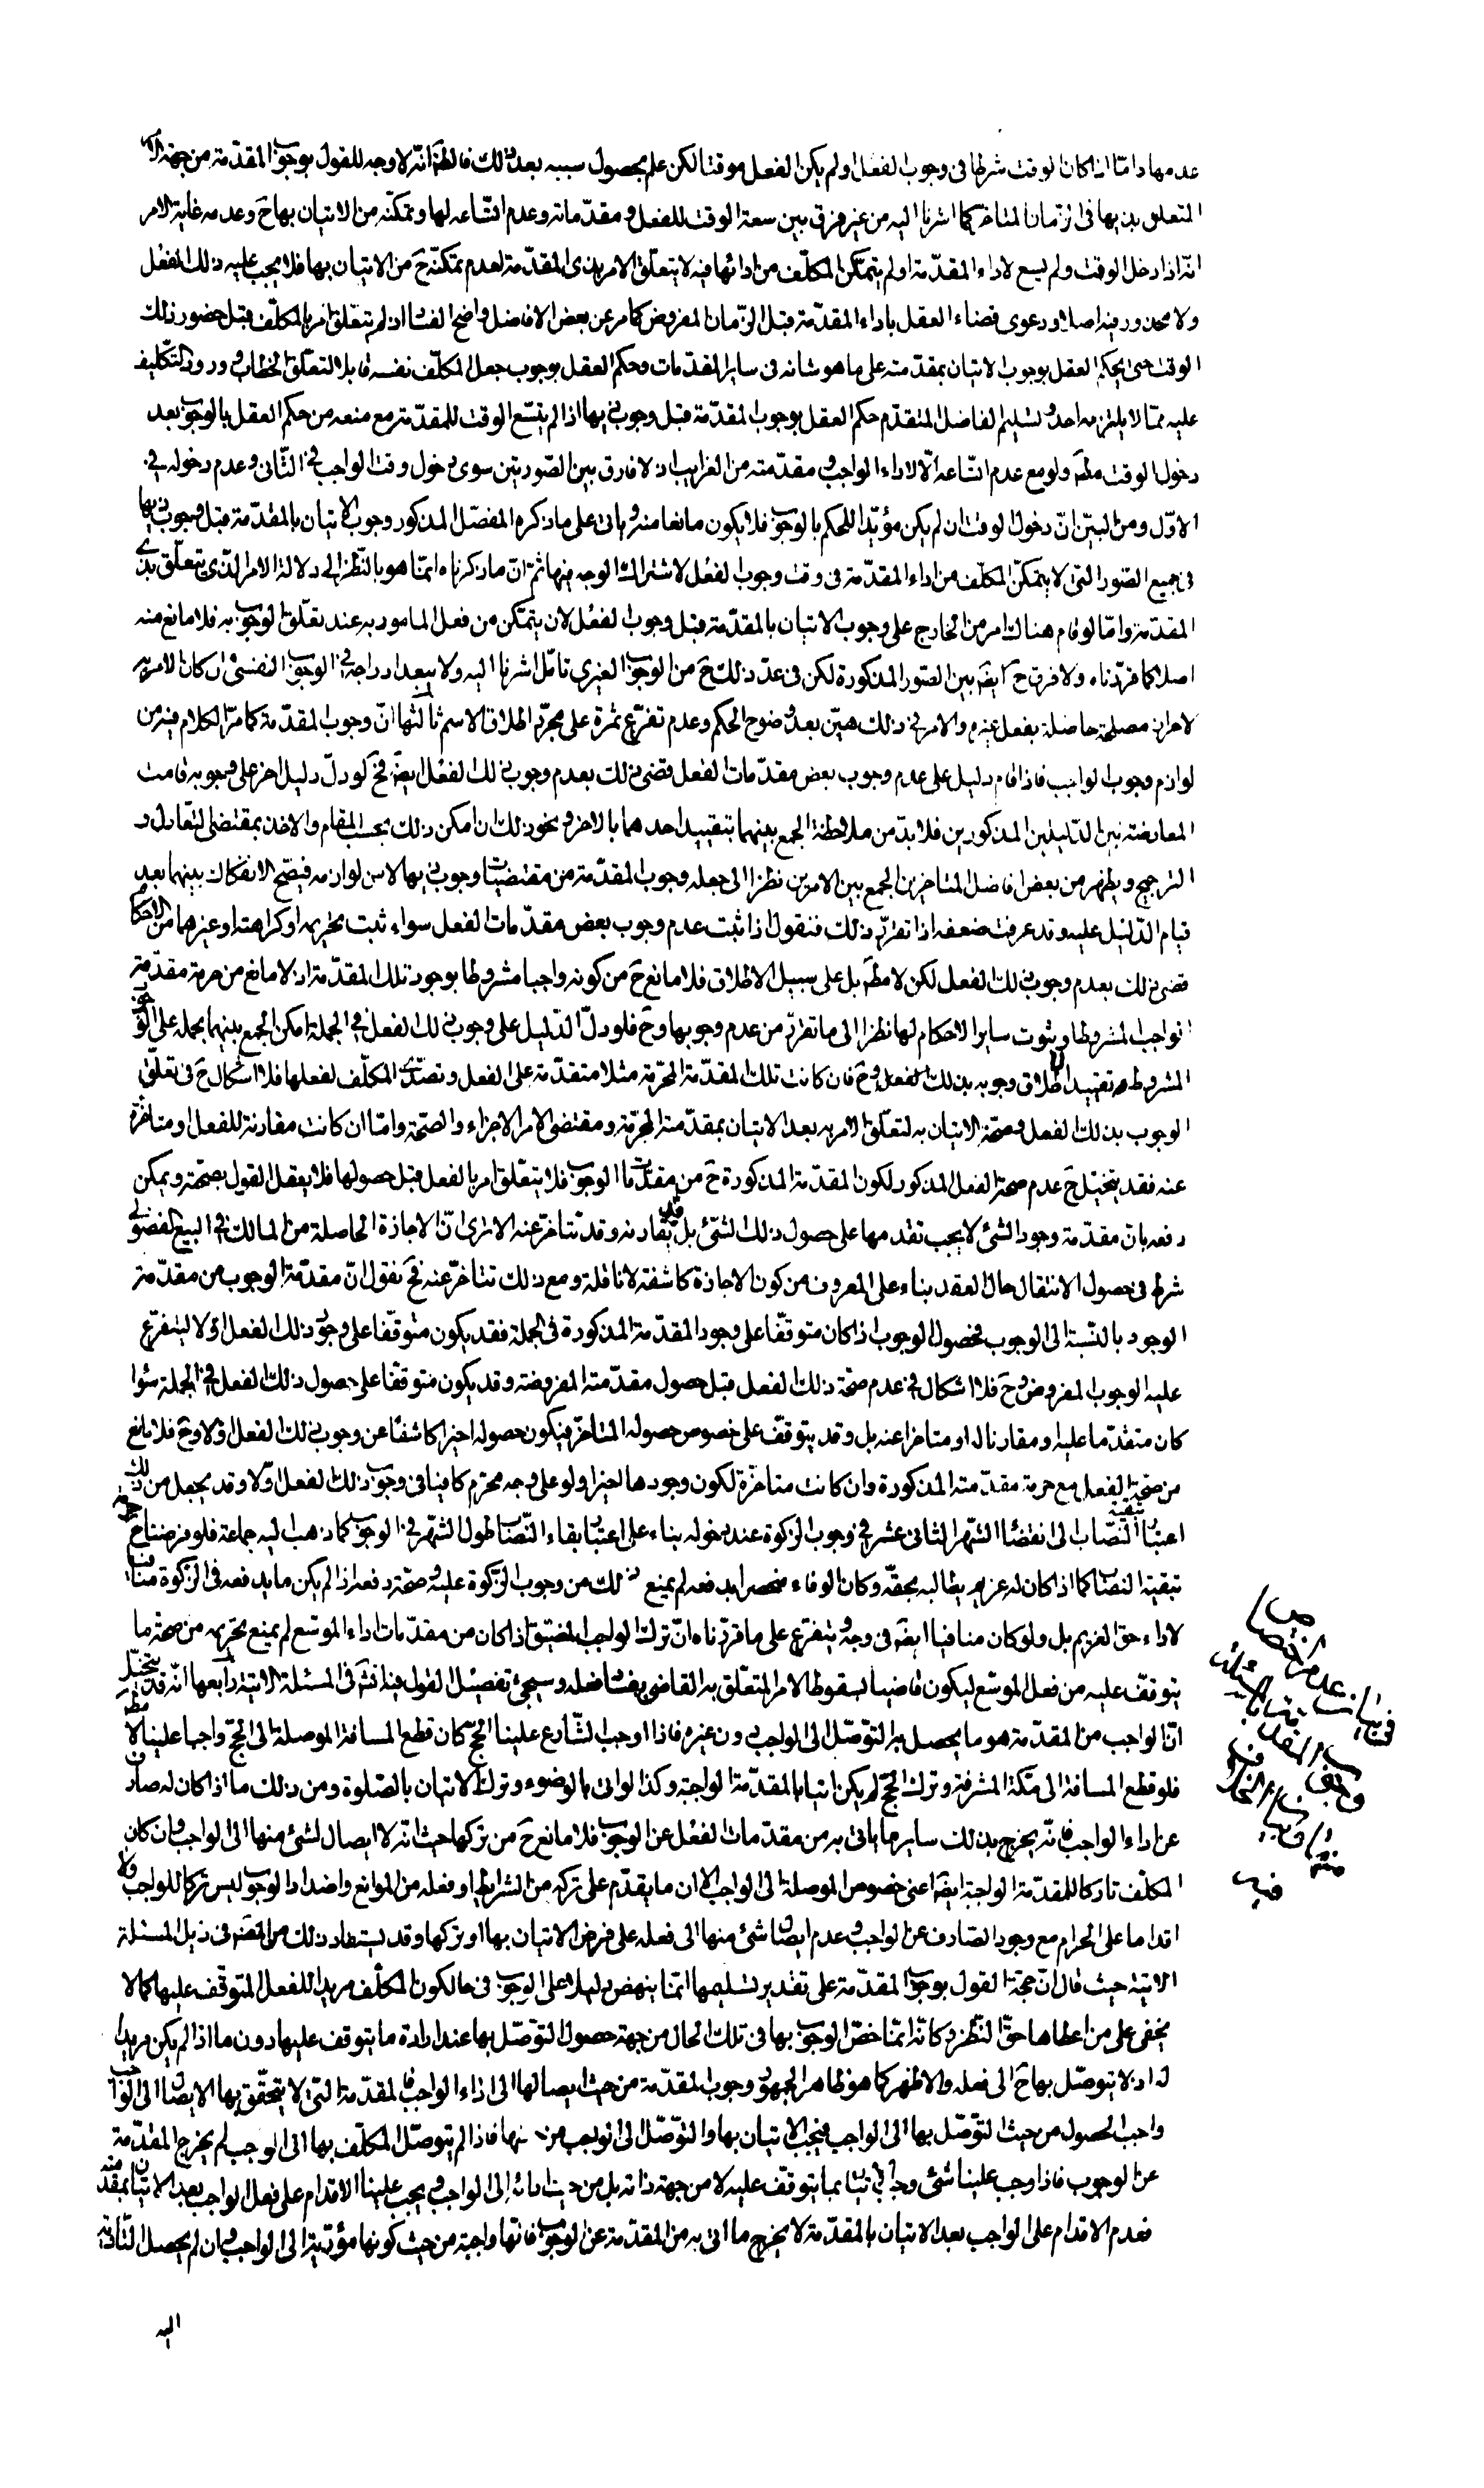 عدمها دامّا اذا كان الوقت شرطا فى وجوب الفعل او لم يكن الفعل موقتا لكن علم بحصول سببه بعد ذلك فالظّ انّه لا وجه للقول بوجوب المقدّمة من جهة الامر
المتعلق بذيها فى الزمان المتاخر كما اشرنا اليه من غير فرق بين سعة الوقت للفعل و مقدّماته وعدم اتّساعه لها وتمكنه من الاتيان بها ح وعدمه غاية الامر
انّه اذا دخل الوقت ولم يسع لاداء المقدّمة او لم يتمكن المكلّف من ادائها فيه لا يتعلّق الامر بذى المقدّمة لعدم تمكنه ح من الاتيان بها فلا يجب عليه ذلك الفعل
ولا محذور فيه اصلا ودعوى قضاء العقل باداء المقدّمة قبل الزّمان المفروض كما مر عن بعض الافاضل واضح الفساد اذ لم يتعلّق امر بالمكلّف قبل حضور ذلك
الوقت حتى يحكم العقل بوجوب الاتيان بمقدّمته على ما هو شانه فى ساير المقدمات وحكم العقل بوجوب جعل المكلّف نفسه قابلا لتعلّق الخطاب و ورود التكليف
عليه ممّا لا يلتزمه احد و تسليم الفاضل المتقدّم حكم العقل بوجوب المقدّمة قبل وجوب ذيها اذا لم يتسع الوقت للمقدّمة مع منعه من حكم العقل بالوجوب بعد
دخول الوقت مطّ ولو مع عدم اتّساعه الّا لاداء الواجب و مقدّمته من الغرايب اذ لا فارق بين الصّورتين سوى دخول وقت الواجب فى الثّانى و عدم دخوله فى
الاوّل ومن البيّن انّ دخول الوقت ان لم يكن مؤيّدا للحكم بالوجوب فلا يكون مانعا منه و ياتى على ما ذكره المفصّل المذكور وجوب الاتيان بالمقدّمة قبل وجوب ذيها
فى جميع الصّور التى لا يتمكّن المكلّف من اداء المقدّمة فى وقت وجوب الفعل لاشتراك الوجه فيها ثمّ انّ ما ذكرناه انّما هو بالنّظر الى دلالة الامر الذى يتعلّق بذى
المقدّمة وامّا لو قام هناك امر من الخارج على وجوب الاتيان بالمقدّمة قبل وجوب الفعل لان يتمكن من فعل المامور به عند تعلّق الوجوب به فلا مانع منه
اصلا كما قرّرناه ولا فرق ح ايضّ بين الصّور المذكورة لكن فى عدّ ذلك ح من الوجوب الغيرى تامّل اشرنا اليه ولا يبعد ادراجه فى الوجوب النفسى ان كان الامر به
لاحراز مصلحة حاصلة بفعل غيره والامر فى ذلك هيّن بعد وضوح الحكم وعدم تفرّع ثمرة على مجرّد اطلاق الاسم ثالثها انّ وجوب المقدّمة كما مرّ الكلام فيه من
لوازم وجوب الواجب فاذا قام دليل على عدم وجوب بعض مقدّمات الفعل قضى ذلك بعدم وجوب ذلك الفعل ايضّ فح لو دلّ دليل اخر على وجوبه قامت
المعارضة بين الدّليلين المذكورين فلا بدّ من ملاحظة الجمع بينهما بتقييد احدهما بالاخر و نحو ذلك ان امكن ذلك بحسب المقام والاخذ بمقتضى التعادل و
الترجيح ويظهر من بعض افاضل المتاخرين الجمع بين الامرين نظرا الى جعله وجوب المقدّمة من مقتضيات وجوب ذيها لا من لوازمه فيصّح الانفكاك بينهما بعد
قيام الدّليل عليه وقد عرفت ضعفه اذا تقرر ذلك فنقول اذا ثبت عدم وجوب بعض مقدّمات الفعل سواء ثبت تحريمه او كراهته او غيرهما من الاحكام
قضى ذلك بعدم وجوب ذلك الفعل لكن لا مطّ بل على سبيل الاطلاق فلا مانع ح من كونه واجبا مشروطا بوجود تلك المقدّمة اذ لا مانع من حرمة مقدّمة
الواجب المشروط او ثبوت ساير الاحكام لها نظرا الى ما تقرّر من عدم وجوبها وح فلو دلّ الدّليل على وجوب ذلك الفعل فى الجملة امكن الجمع بينهما بحمله على الوجوب
المشروط و تقييد اطلاق وجوبه بذلك الفعل وح فان كانت تلك المقدّمة المحرّمة مثلا متقدّمة على الفعل و تصدّى المكلّف لفعلها فلا اشكال ح فى تعلّق
الوجوب بذلك الفعل وصحّة الاتيان به لتعلّق الامر به بعد الاتيان بمقدّمته المحرّمة ومقتضى الامر الاجزاء والصحّة وامّا ان كانت مقارنة للفعل او متاخّرة
عنه فقد يتخيّل ح عدم صحّة الفعل المذكور لكون المقدّمة المذكورة ح من مقدّمات الوجوب فلا يتعلّق امر بالفعل قبل حصولها فلا يعقل القول بصحّته ويمكن
دفعه بان مقدّمة وجود الشئ لا يجب تقدمها على حصول ذلك الشئ بل قد تقارنه وقد تتاخرّ عنه الا ترى انّ الاجازة الحاصلة من المالك فى البيع الفضولى
شرط فى حصول الانتقال حال العقد بناء على المعروف من كون الاجازة كاشفة لا ناقلة ومع ذلك تتاخّر عنه فح نقول انّ مقدّمة الوجوب من مقدّمة
الوجود بالنّسبة الى الوجوب فحصول الوجوب اذا كان متوقّفا على وجود المقدّمة المذكورة فى الجملة فقد يكون متوقّفا على وجود ذلك الفعل اوّلا ليتفرّع
عليه الوجوب المفروض وح فلا اشكال فى عدم صحّة ذلك الفعل قبل حصول مقدّمته المفروضة وقد يكون متوقفا على حصول ذلك الفعل فى الجملة سواء
كان متقدّما عليه او مقارنا له او متاخرا عنه بل وقد يتوقّف على خصوص حصوله المتاخّر فيكون حصوله اخيرا كاشفا عن وجوب ذلك الفعل اوّلا وح فلا مانع
من صحّة الفعل مع حرمة مقدّمته المذكورة وان كانت متاخّرة لكون وجودها اخيرا ولو على وجه محرّم كافيا فى وجوب ذلك الفعل اوّلا وقد يجعل من ذلك
اعتبار تبقية النّصاب الى انقضاء الشّهر الثانى عشر فى وجوب الزكوة عند دخوله بناء على اعتبار بقاء النّصاب طول الشّهر فى الوجوب كما ذهب اليه جماعة فلو فرضنا ح حرمة
تبقية النصاب كما اذا كان له غريم يطالبه بحقّه وكان الوفاء منحصرا بدفعه لم يمنع ذلك من وجوب الزّكوة عليه و صحّة دفعه اذا لم يكن ما يدفعه فى الزكوة منافيا
لاداء حق الغريم بل ولو كان منافيا ايضّ فى وجه و يتفرّع على ما قرّرناه انّ ترك الواجب المضيّق اذا كان من مقدّمات اداء الموسّع لم يمنع تحريمه من صحّة ما
يتوقّف عليه من فعل الموسّع ليكون قاضيا بسقوط الامر المتعلّق به القاضى بفساد فعله وسيجئ تفصيل القول فيه انشّ فى المسئلة الاتية رابعها انّه قد يتخيّل
انّ الواجب من المقدّمة هو ما يحصل به التوّصّل الى الواجب دون غيره فاذا اوجب الشّارع علينا الحجّ كان قطع المسافة الموصلة الى الحجّ واجبا علينا لا مطّ
فلو قطع المسافة الى مكّة المشرفة وترك الحجّ لم يكن اتيا بالمقدّمة الواجبة وكذا لو اتى بالوضوء وترك الاتيان بالصّلوة ومن ذلك ما اذا كان له صارف
عن اداء الواجب فانّه يخرج بذلك ساير ما ياتى به من مقدّمات الفعل عن الوجوب فلا مانع ح من تركها حيث انّه لا ايصال لشئ منها الى الواجب وان كان
المكلّف تاركا للمقدّمة الواجبة ايضّ اعنى خصوص الموصلة الى الواجب الا ان ما يقدّم على تركه من الشرايط او فعله من الموانع واضداد الوجوب ليس تركا للواجب ولا
اقداما على الحرام مع وجود الصّارف عن الواجب و عدم ايصال شئ منها الى فعله على فرض الاتيان بها او تركها وقد يستفاد ذلك من المصّ فى ذيل المسئلة
الاتية حيث قال انّ حجّة القول بوجوب المقدّمة على تقدير تسليمها انّما ينهض دليلا على الوجوب فى حال كون المكلّف مريدا للفعل المتوقّف عليها كما لا
يخفى على من اعطاها حقّ النّظر وكانّه انّما خصّ الوجوب بها فى تلك الحال من جهة حصول التوّصّل بها عند ارادة ما يتوقف عليها دون ما اذا لم يكن مريدا
له اذ لا يتوصّل بها ح الى فعله والاظهر كما هو ظاهر الجمهور وجوب المقدّمة من حيث ايصالها الى اداء الواجب فالمقدّمة التى لا يتحقّق بها الايصال الى الواجب
واجب الحصول من حيث التوّصّل بها الى الواجب فيجب الاتيان بها والتوّصّل الى الواجب من جهتها فاذا لم يتوصّل المكلّف بها الى الواجب لم يخرج المقدّمة
عن الوجوب فاذا وجب علينا شئ وجب الاتيان بما يتوقّف عليه لا من جهة ذاته بل من حيث ادائه الى الواجب و يجب علينا الاقدام على فعل الواجب بعد الاتيان بمقدّمته
فعدم الاقدام على الواجب بعد الاتيان بالمقدّمة لا يخرج ما اتى به من المقدّمة عن الوجوب فانّها واجبة من حيث كونها مؤدّية الى الواجب وان لم يحصل التّادية
فى بيان عدم اختصاص
اليه